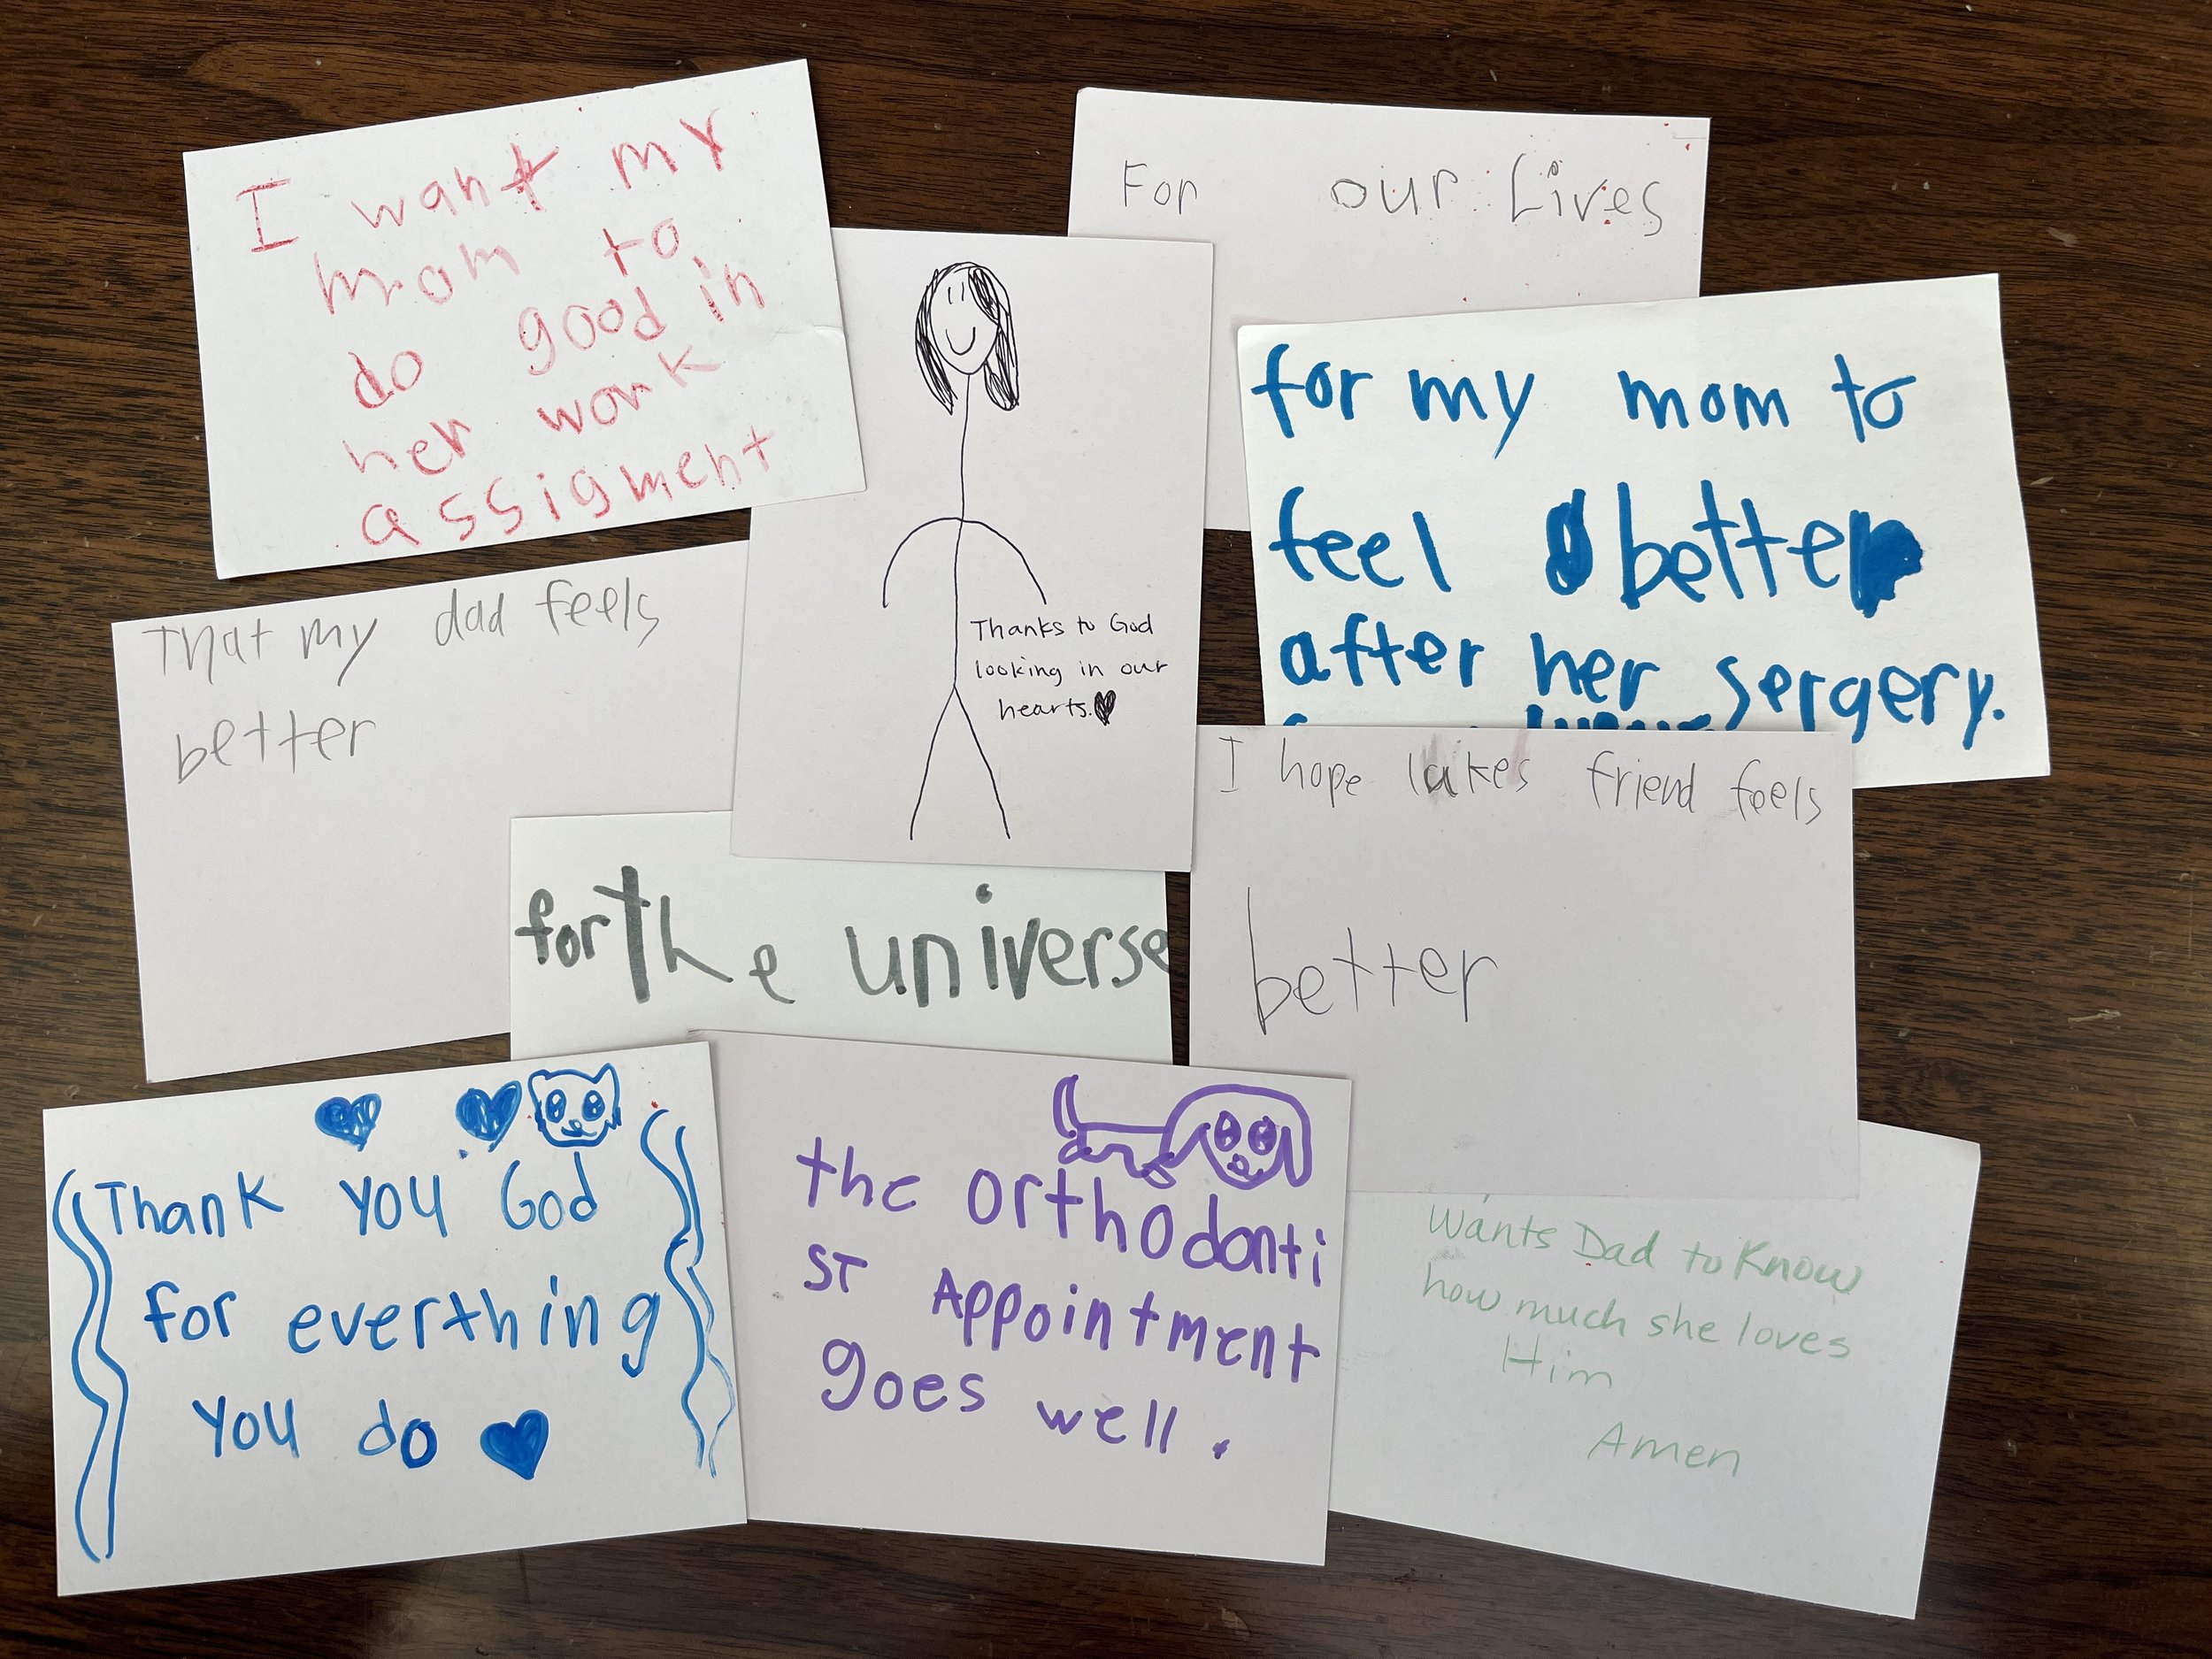 I want my
mom to
do good in
her work
assigment
For our Lives
Thanks to God
looking in our
hearts.
for my mom to
feel better
after her sergery.
That my dad feels
better
for the universe
I hope lukes friend feels
better
Thank you God
for everthing
you do
the orthodonti
st Appointment
goes well.
Wants Dad to Know
how much she loves
Him
Amen